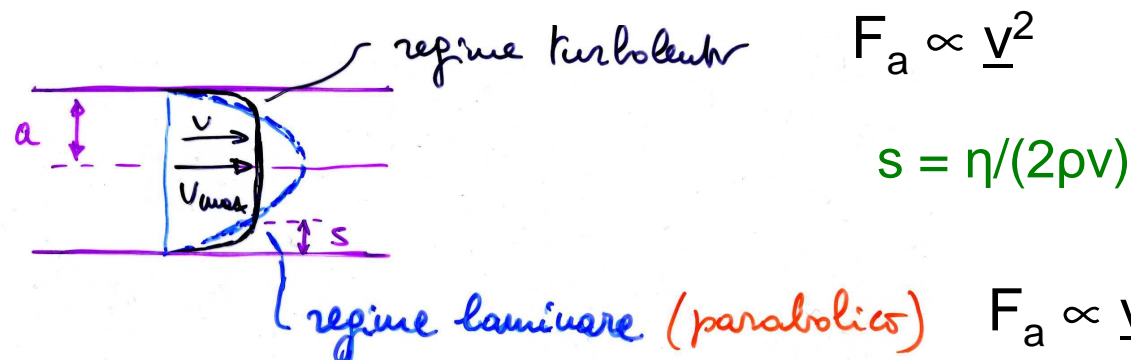 regime turbolento
Fₐ ∝ v²
a
v
vmax
s
s = η/(2ρv)
regime laminare (parabolico)
Fₐ ∝ v